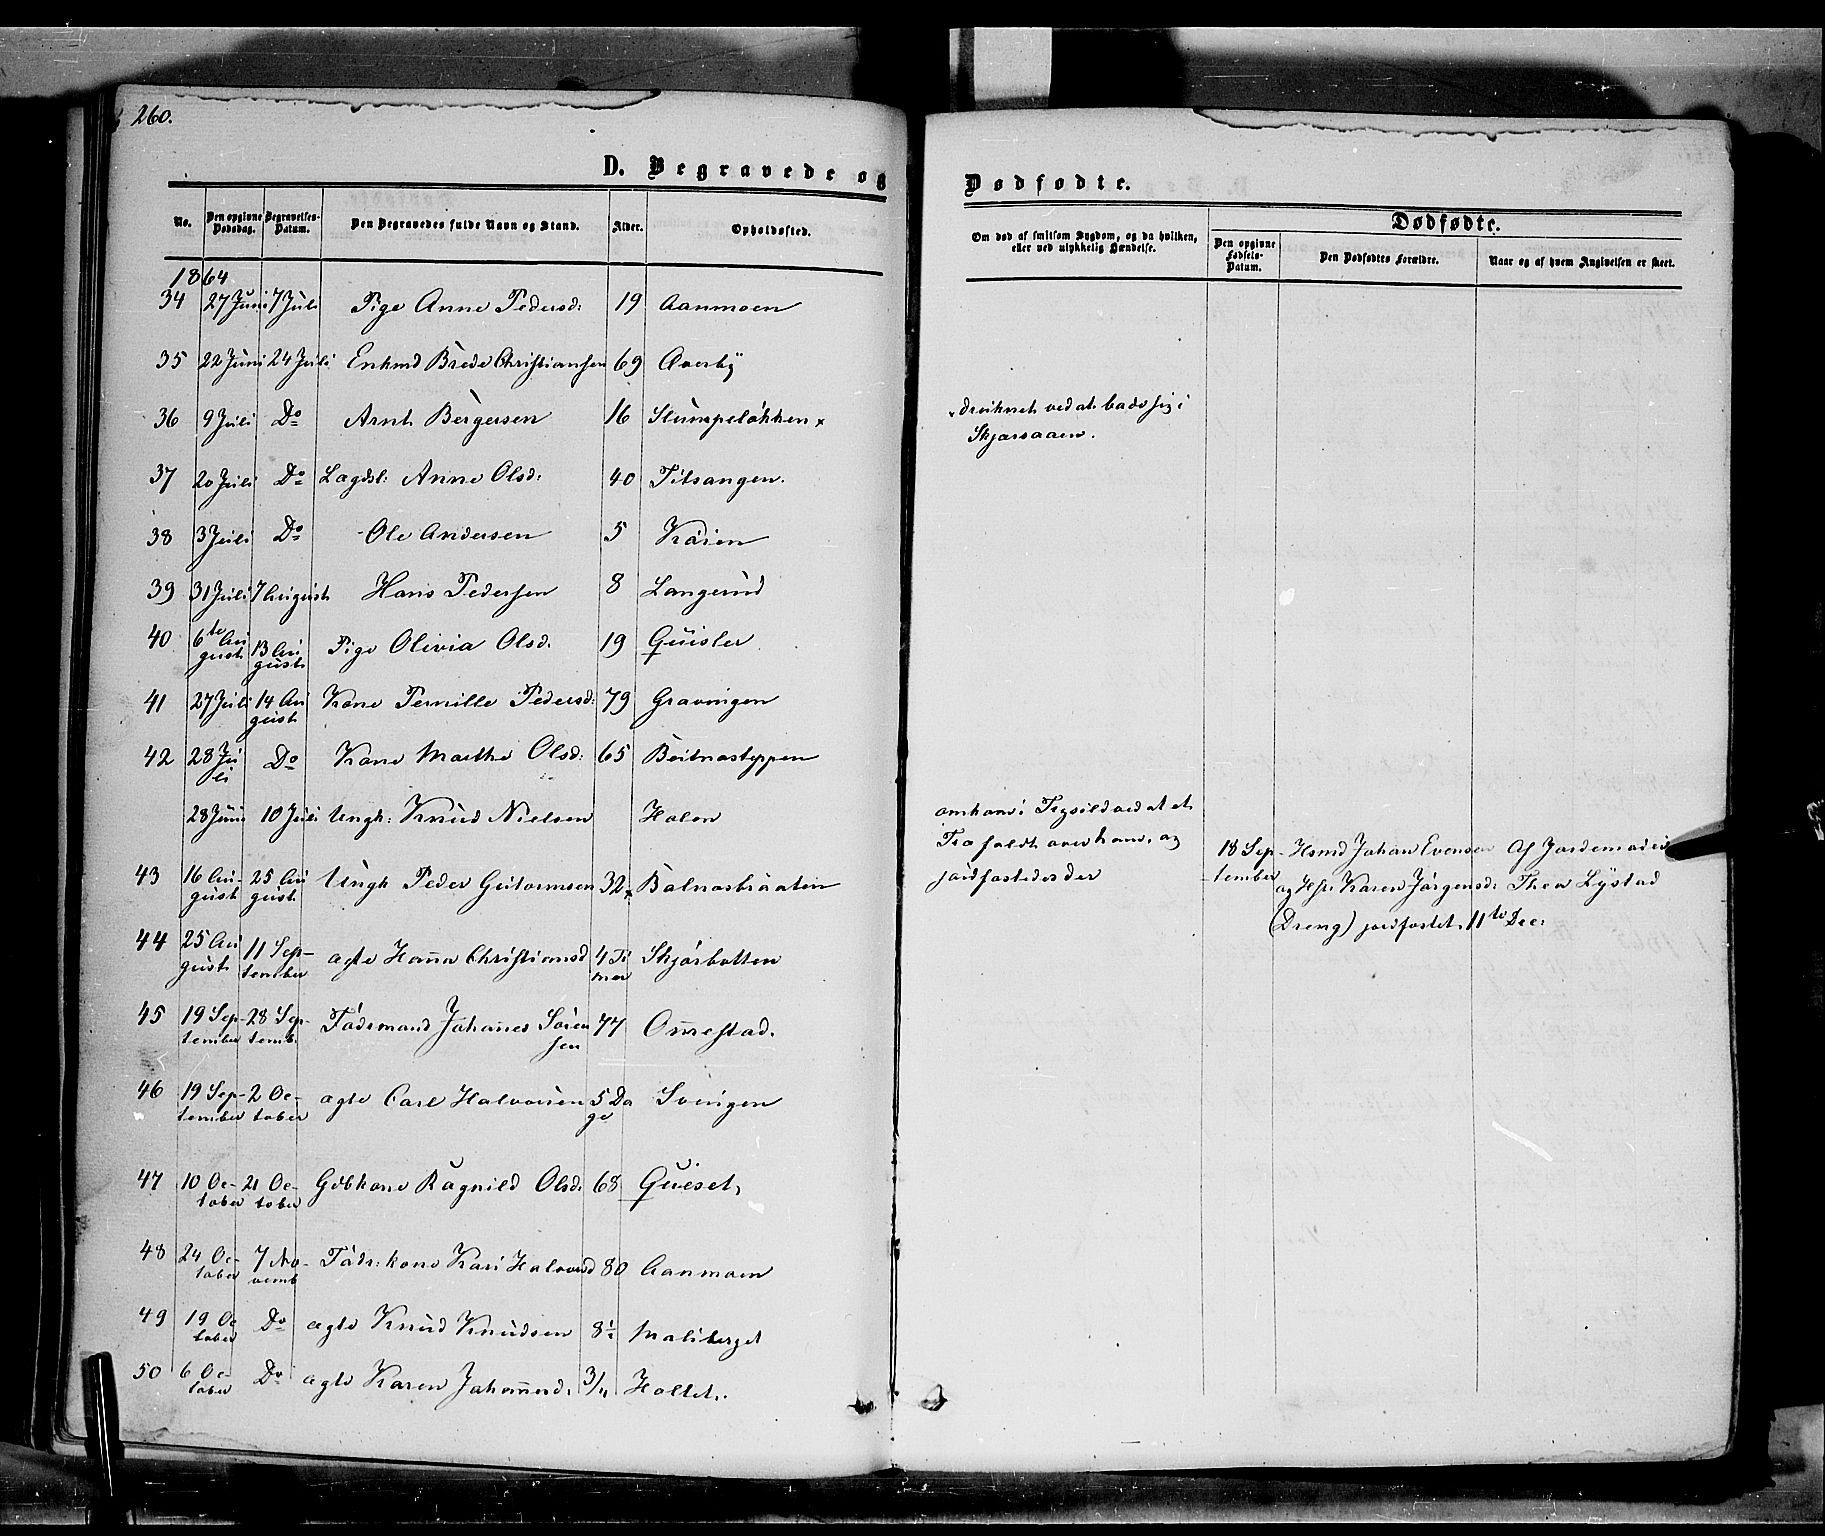 260.
D. Begravede og
No. Den opgivne Dødsdag. Begravelses-Datum. Den Begravedes fulde Navn og Stand. Alder. Opholdssted.
1864
34 27 Juni 7 Juli Pige Anne Pedersd: 19 Aanmoen
35 22 Juni 24 Juli Enkmd Brede Christiansen 69 Averby
36 9 Juli Do Arnt Bergersen 16 Slumpeløkken x
37 20 Juli Do Lægdsl: Anne Olsd: 40 Titsangen.
38 3 Juli Do Ole Andersen 5 Kröien
39 31 Juli 7 August Hans Pedersen 8 Langerud
40 6te August 13 August Pige Olivia Olsd. 19 Quisler
41 27 Juli 14 August Kone Pernille Pedersd: 79 Gravingen
42 28 Juli Do Kone Marthe Olsd: 65 Beitnæsteppen
28 Juni 10 Juli Ungk: Knud Nielsen Holen
43 16 August 25 August Ungk Peder Gutormsen 32 Balnæsbraaten
44 25 August 11 September ægte Hanna Christiansd 4 Timer Skjørbotten
45 19 September 28 Septemb. Födsmand Johannes Sörensen 77 Ommestad.
46 19 September 2 October ægte Carl Halvorsen 5 Dage Svingen
47 10 October 21 October Gdbkone Ragnild Olsd. 68 Quiset,
48 24 October 7 Novemb Födr: kone Kari Halvorsd 80 Aanmoen
49 19 October Do ægte Knud Knudsen 8½ Maliberget
50 6 October Do ægte Karen Johannesd. 3/11 Holtet.
Dødfødte.
Om død af smitsom Sygdom, og da hvilken, eller ved ulykkelig Hændelse.
Dødfødte.
Den opgivne Fødsels-Datum. Den Dødfødtes Forældre. Naar og af hvem Angivelsen er skeet.
x druknet ved at bade sig i
Skjæraaen.
omkom i Trysild ved at et
Træ faldt over ham, og
jordfæstedes der
18 September Hsmd Johan Evensen Af Jordemoder
og Hst: Karen Jørgensd: Thea Lystad
(Dreng) jordfæstet 11te Dec: